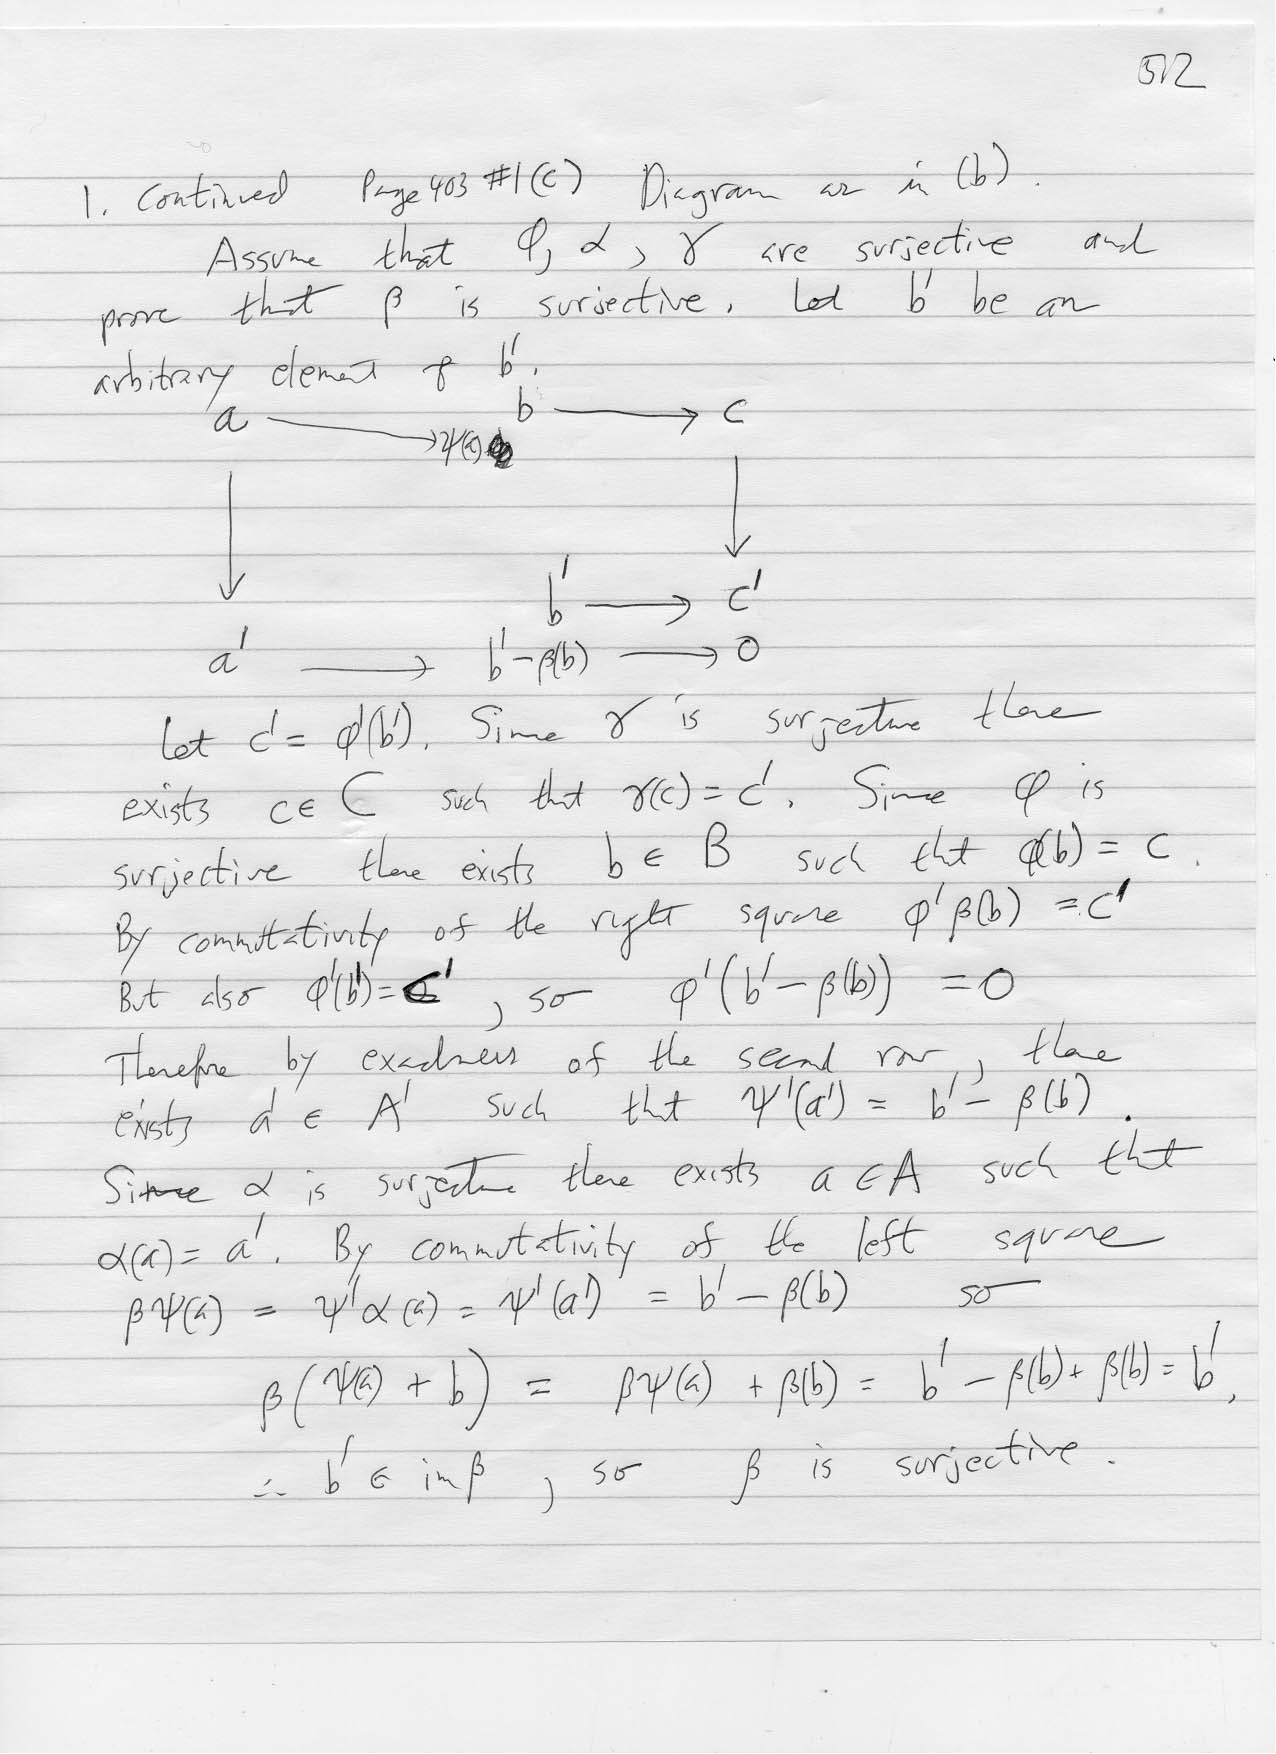 512
1. Continued Page 403 #1(c) Diagram as in (b).
Assume that φ, α, γ are surjective and
prove that β is surjective. Let b' be an
arbitrary element of b'.
a → ψ(a) b → c
b' → c'
a' → b'-β(b) → 0
Let c' = φ'(b'). Since γ is surjective there
exists c ∈ C such that γ(c) = c'. Since φ is
surjective there exists b ∈ B such that φ(b) = c.
By commutativity of the right square φ'β(b) = c'
But also φ'(b') = c', so φ'(b' - β(b)) = 0
Therefore by exactness of the second row, there
exists a' ∈ A' such that ψ'(a') = b' - β(b).
Since α is surjective there exists a ∈ A such that
α(a) = a'. By commutativity of the left square
βψ(a) = ψ'α(a) = ψ'(a') = b' - β(b) so
β(ψ(a) + b) = βψ(a) + β(b) = b' - β(b) + β(b) = b',
∴ b' ∈ im β, so β is surjective.